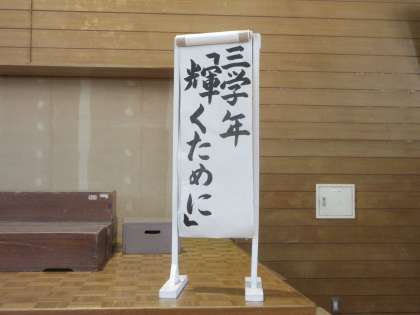 三学年
「輝くために」